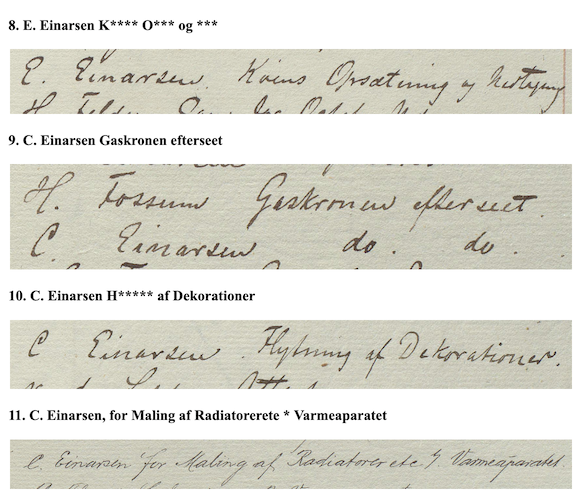 8. E. Einarsen K**** O*** og ***
E. Einarsen Opsætning og Nedtagning
9. C. Einarsen Gaskronen efterseet
H. Fossum Gaskronen efterseet.
C. Einarsen do. do.
10. C. Einarsen H***** af Dekorationer
C Einarsen. Flytning af Dekorationer.
11. C. Einarsen, for Maling af Radiatorerete * Varmeaparatet
C. Einarsen for Maling af Radiatorer etc. Varmeaparatet